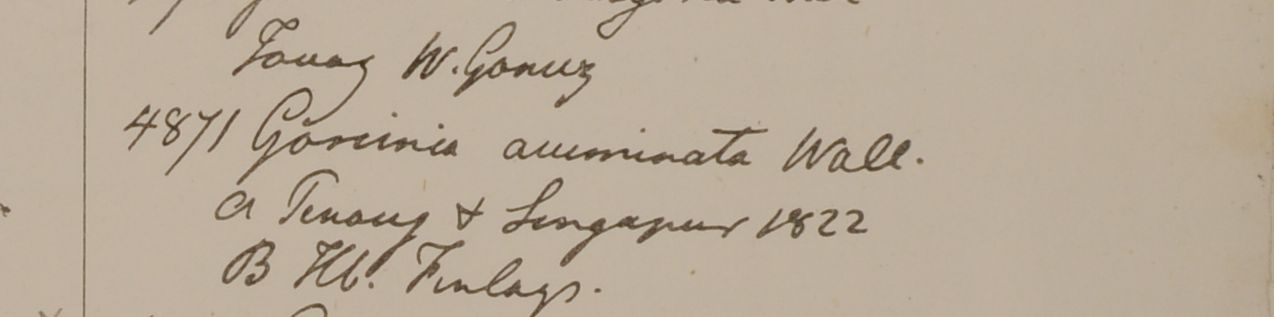 Tavoy W. Gomez
4871 Garcinia acuminata Wall.
a Penang & Singapur 1822
B Hb. Finlays.